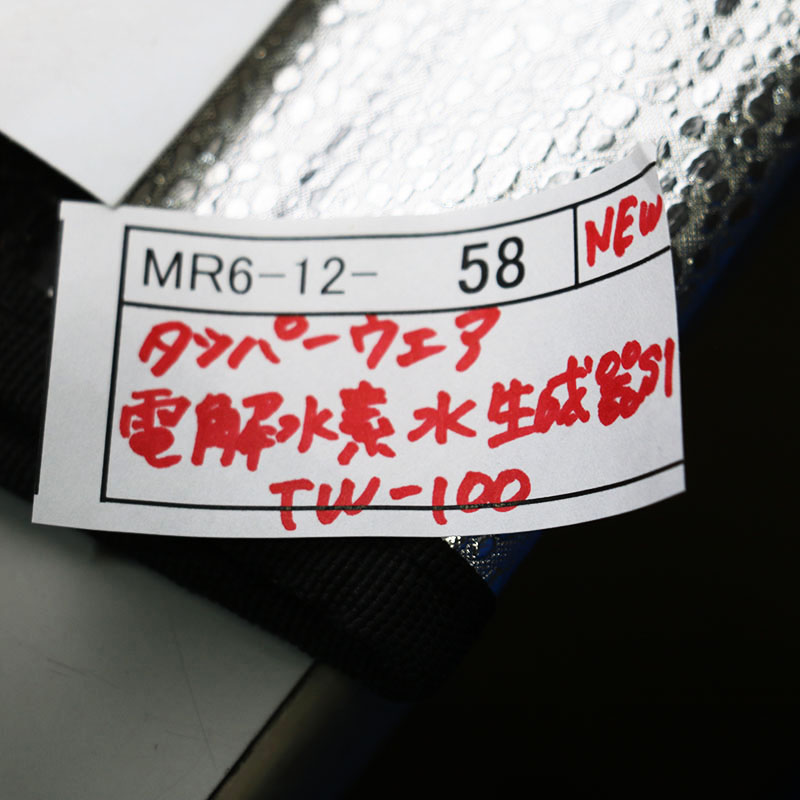 MR6-12- 58 NEW
タッパーウェア
電解水素水生成器S1
TW-100